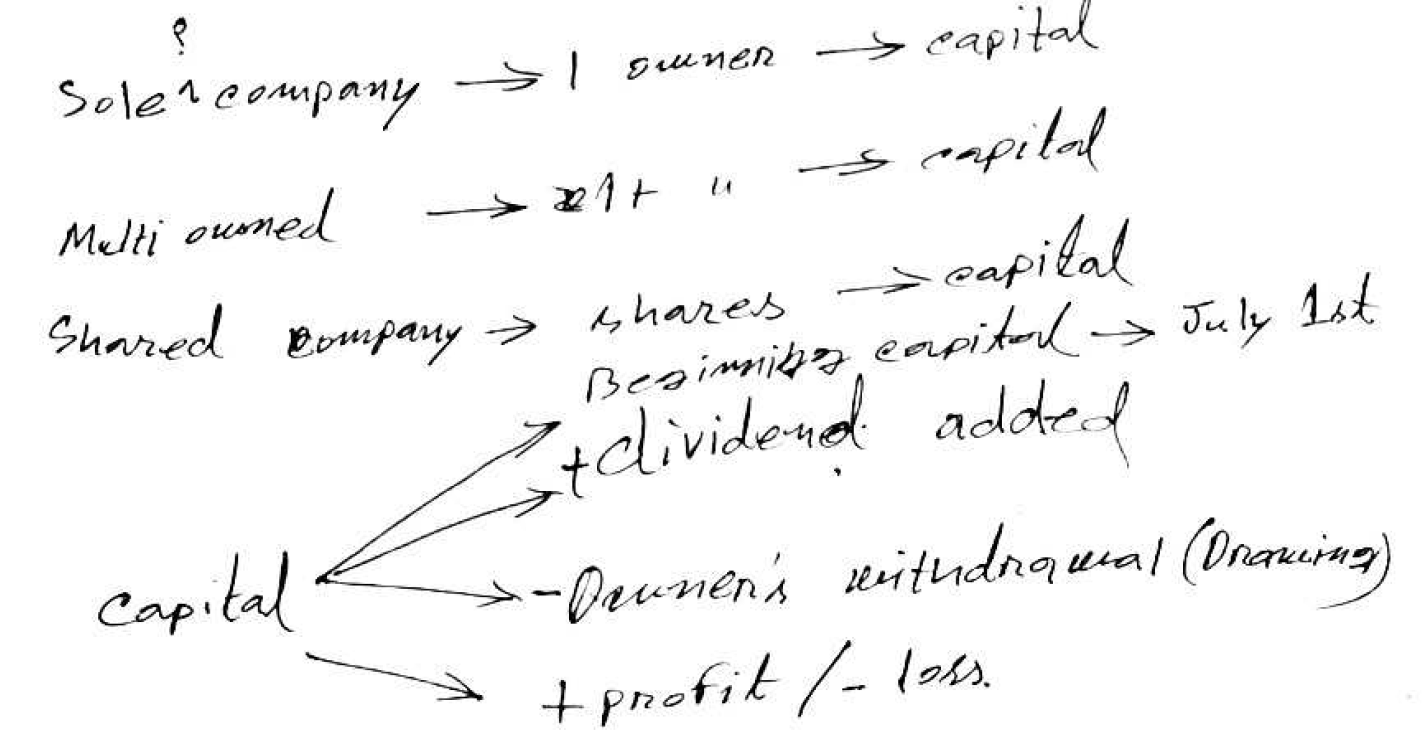 ?
Sole ^ company → 1 owner → capital
Multi owned → 1+ " → capital
Shared company → shares → capital
Beginning capital → July 1st
+ dividend added
Capital
- Owner's withdrawal (Drawing)
+ profit / - loss.